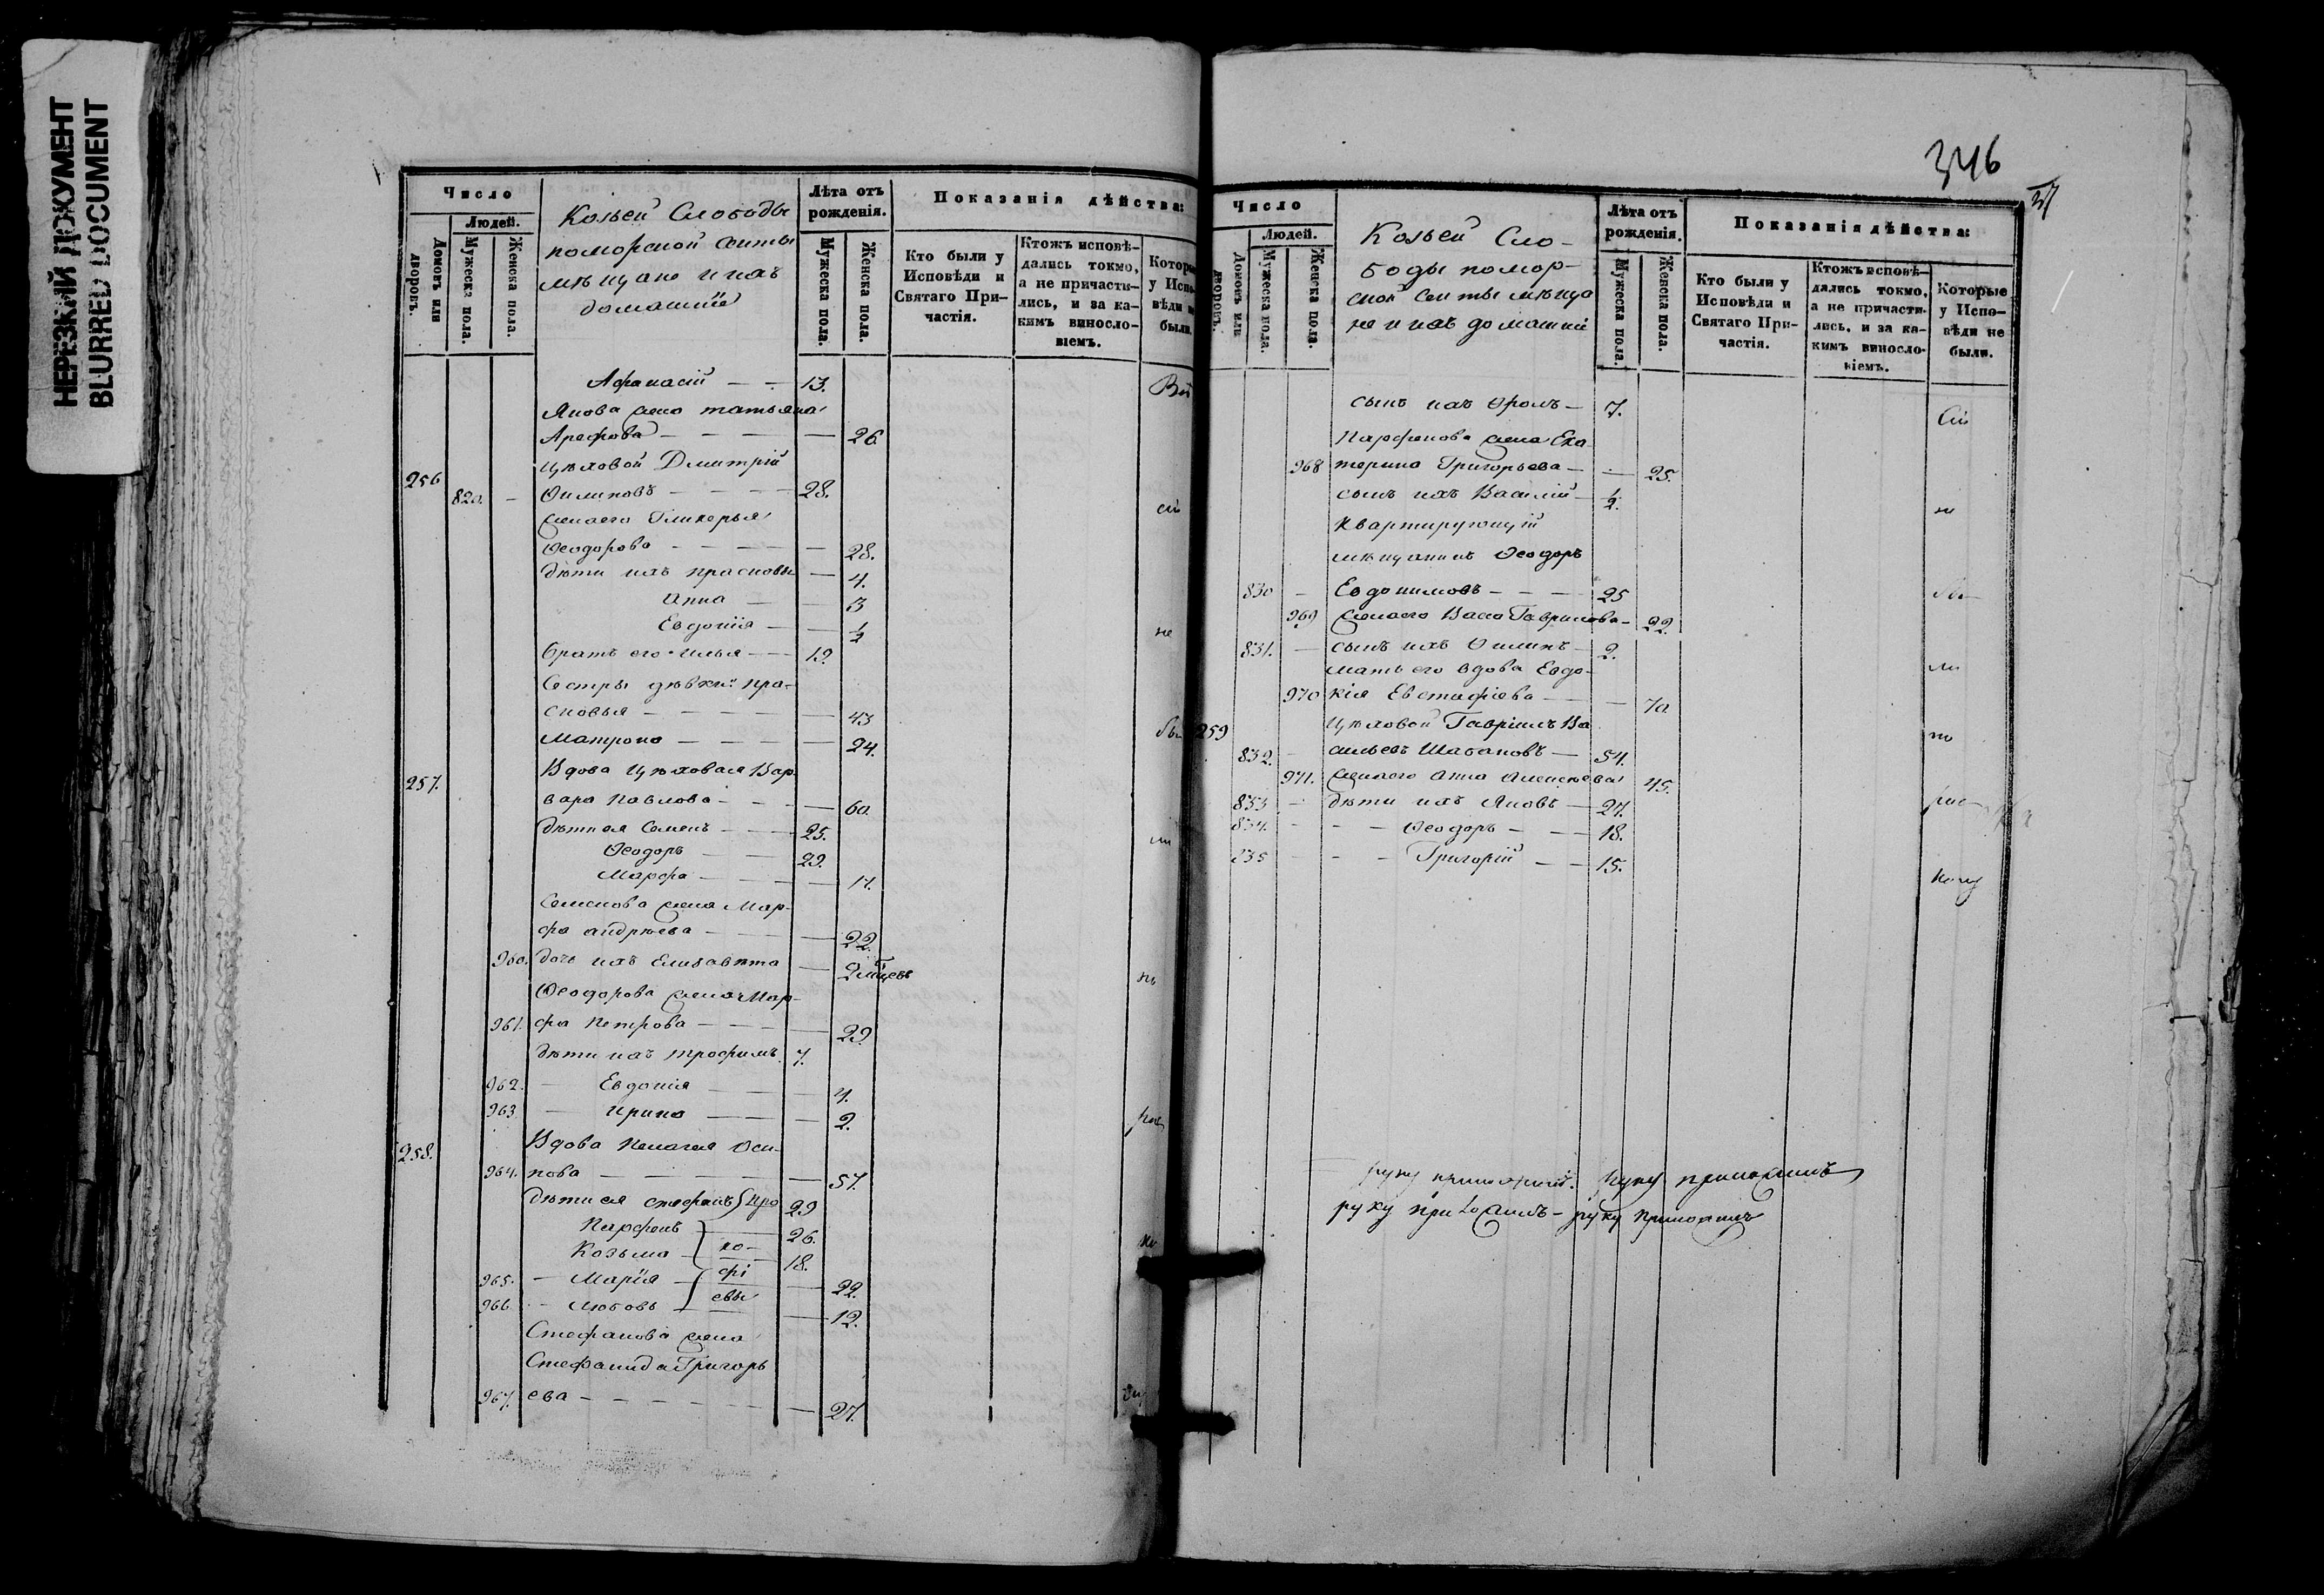 НЕРЕЗКИЙ ДОКУМЕНТ
BLURRED DOCUMENT
Число
Людей.
Домовъ или дворовъ.
Мужеска пола.
Женска пола.
Козьей Слободы
поморской секты
мѣщане и ихъ
домашніе
Лѣта отъ рожденія.
Мужеска пола.
Женска пола.
Показанія дѣйства:
Кто были у Исповѣди и Святаго Причастія.
Ктожъ исповѣдались токмо, а не причастились, и за какимъ винословіемъ.
у
были.
Афанасій — — 13.
Якова жена татьяна
Арефова — — — — 26.
256 Цѣховой Дмитрій
820. — Филиповъ — — — 28.
жена его Гликерья
Феодорова — — — — 28.
дѣти ихъ прасковья — 4.
Анна — — 3
Евдокія — — ½ не
братъ его Илья — — 19.
Сестры дѣвки: Пра-
сковья — — — — 43
Матрона — — — — 24.
257. Вдова Цѣховая Вар-
вара Павлова — — — 60.
дѣти ея Семенъ — — 25.
Феодоръ — — 22.
Марфа — — — 17.
Семенова жена Мар-
фа андрѣева — — — 22.
960. дочь ихъ Елизавѣта — 2
Феодорова жена Мар-
961. фа Петрова — — — 29.
дѣти ихъ трофимъ. 7.
962. — Евдокія — — 4.
963 — ирина — — 2.
258. Вдова Пелагея Оси-
964. пова — — — — 57.
дѣти ея стефанъ Про 29
Парфенъ — 26.
Козьма — ко- 18.
965. — Марія — фі — 22.
966 — любовь — евы — 12.
Стефанова жена
Стефанида Григорь
967. ева — — — — — 27.
346
Число
Людей.
Домовъ или дворовъ.
Мужеска пола.
Женска пола.
Козьей Сло-
боды помор-
ской секты мѣща
не и ихъ домашніе
Лѣта отъ рожденія.
Мужеска пола.
Женска пола.
Показанія дѣйства:
Кто были у Исповѣди и Святаго Причастія.
Ктожъ исповѣдались токмо, а не причастились, и за какимъ винословіемъ.
Которые у Исповѣди не были.
сынъ ихъ Фролъ — 7.
Парфенова жена Ека
968 терина Григорьева — — 25.
сынъ ихъ Василій — ½ не
Квартирующій
мѣщанинъ Феодоръ
830 — Евдокимовъ — — — 25
969 жена его Васа Гаврилова — 22.
831. — сынъ ихъ Филипъ — 2.
мать его вдова Евдо-
970 кія Евстафіева — — 70.
259 Цѣховой Гавріилъ Ва
832. — сильевъ Шабановъ — 54.
971. жена его Анна Алексѣева 45.
833 — дѣти ихъ Яковъ — 27.
834. — — — Феодоръ — — 18.
835 — — — Григорій — — 15.
руку приложилъ. руку приложилъ
руку приложилъ — руку приложилъ